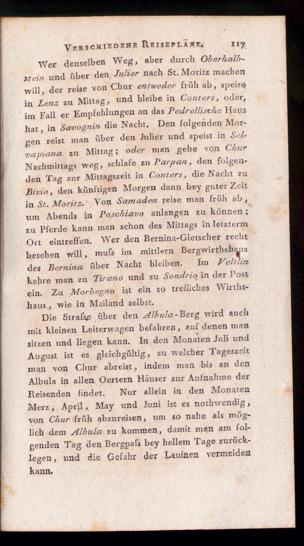 VERSCHIEDENE REISEPLÄNE. 117
Wer denselben Weg, aber durch Oberhalb-
stein und über den Julier nach St. Moritz machen
will, der reise von Chur entweder früh ab, speise
in Lenz zu Mittag, und bleibe in Conters, oder,
im Fall er Empfehlungen an das Pedrellische Haus
hat, in Savognin die Nacht. Den folgenden Mor-
gen reist man über den Julier und speist in Sel-
vapiana zu Mittag; oder man gehe von Chur
Nachmittags weg, schlafe zu Parpan, den folgen-
den Tag zur Mittagszeit in Conters, die Nacht zu
Bivio, den künftigen Morgen dann bey guter Zeit
in St. Moritz. Von Samaden reise man früh ab,
um Abends in Poschiavo anlangen zu können;
zu Pferde kann man schon des Mittags in letzterm
Ort eintreffen. Wer den Bernina-Gletscher recht
besehen will, muſs im mittlern Bergwirthshaus
des Bernina über Nacht bleiben. Im Veltlin
kehre man zu Tirano und zu Sondrio in der Post
ein. Zu Morbegno ist ein so trefliches Wirths-
haus, wie in Mailand selbst.
Die Straſse über den Albula-Berg wird auch
mit kleinen Leiterwagen befahren, auf denen man
sitzen und liegen kann. In den Monaten Juli und
August ist es gleichgültig, zu welcher Tageszeit
man von Chur abreist, indem man bis an den
Albula in allen Oertern Häuser zur Aufnahme der
Reisenden findet. Nur allein in den Monaten
Merz, April, May und Juni ist es nothwendig,
von Chur früh abzureisen, um so nahe als mög-
lich dem Albula zu kommen, damit man am fol-
genden Tag den Bergpaſs bey hellem Tage zurück-
legen, und die Gefahr der Lauinen vermeiden
kann.